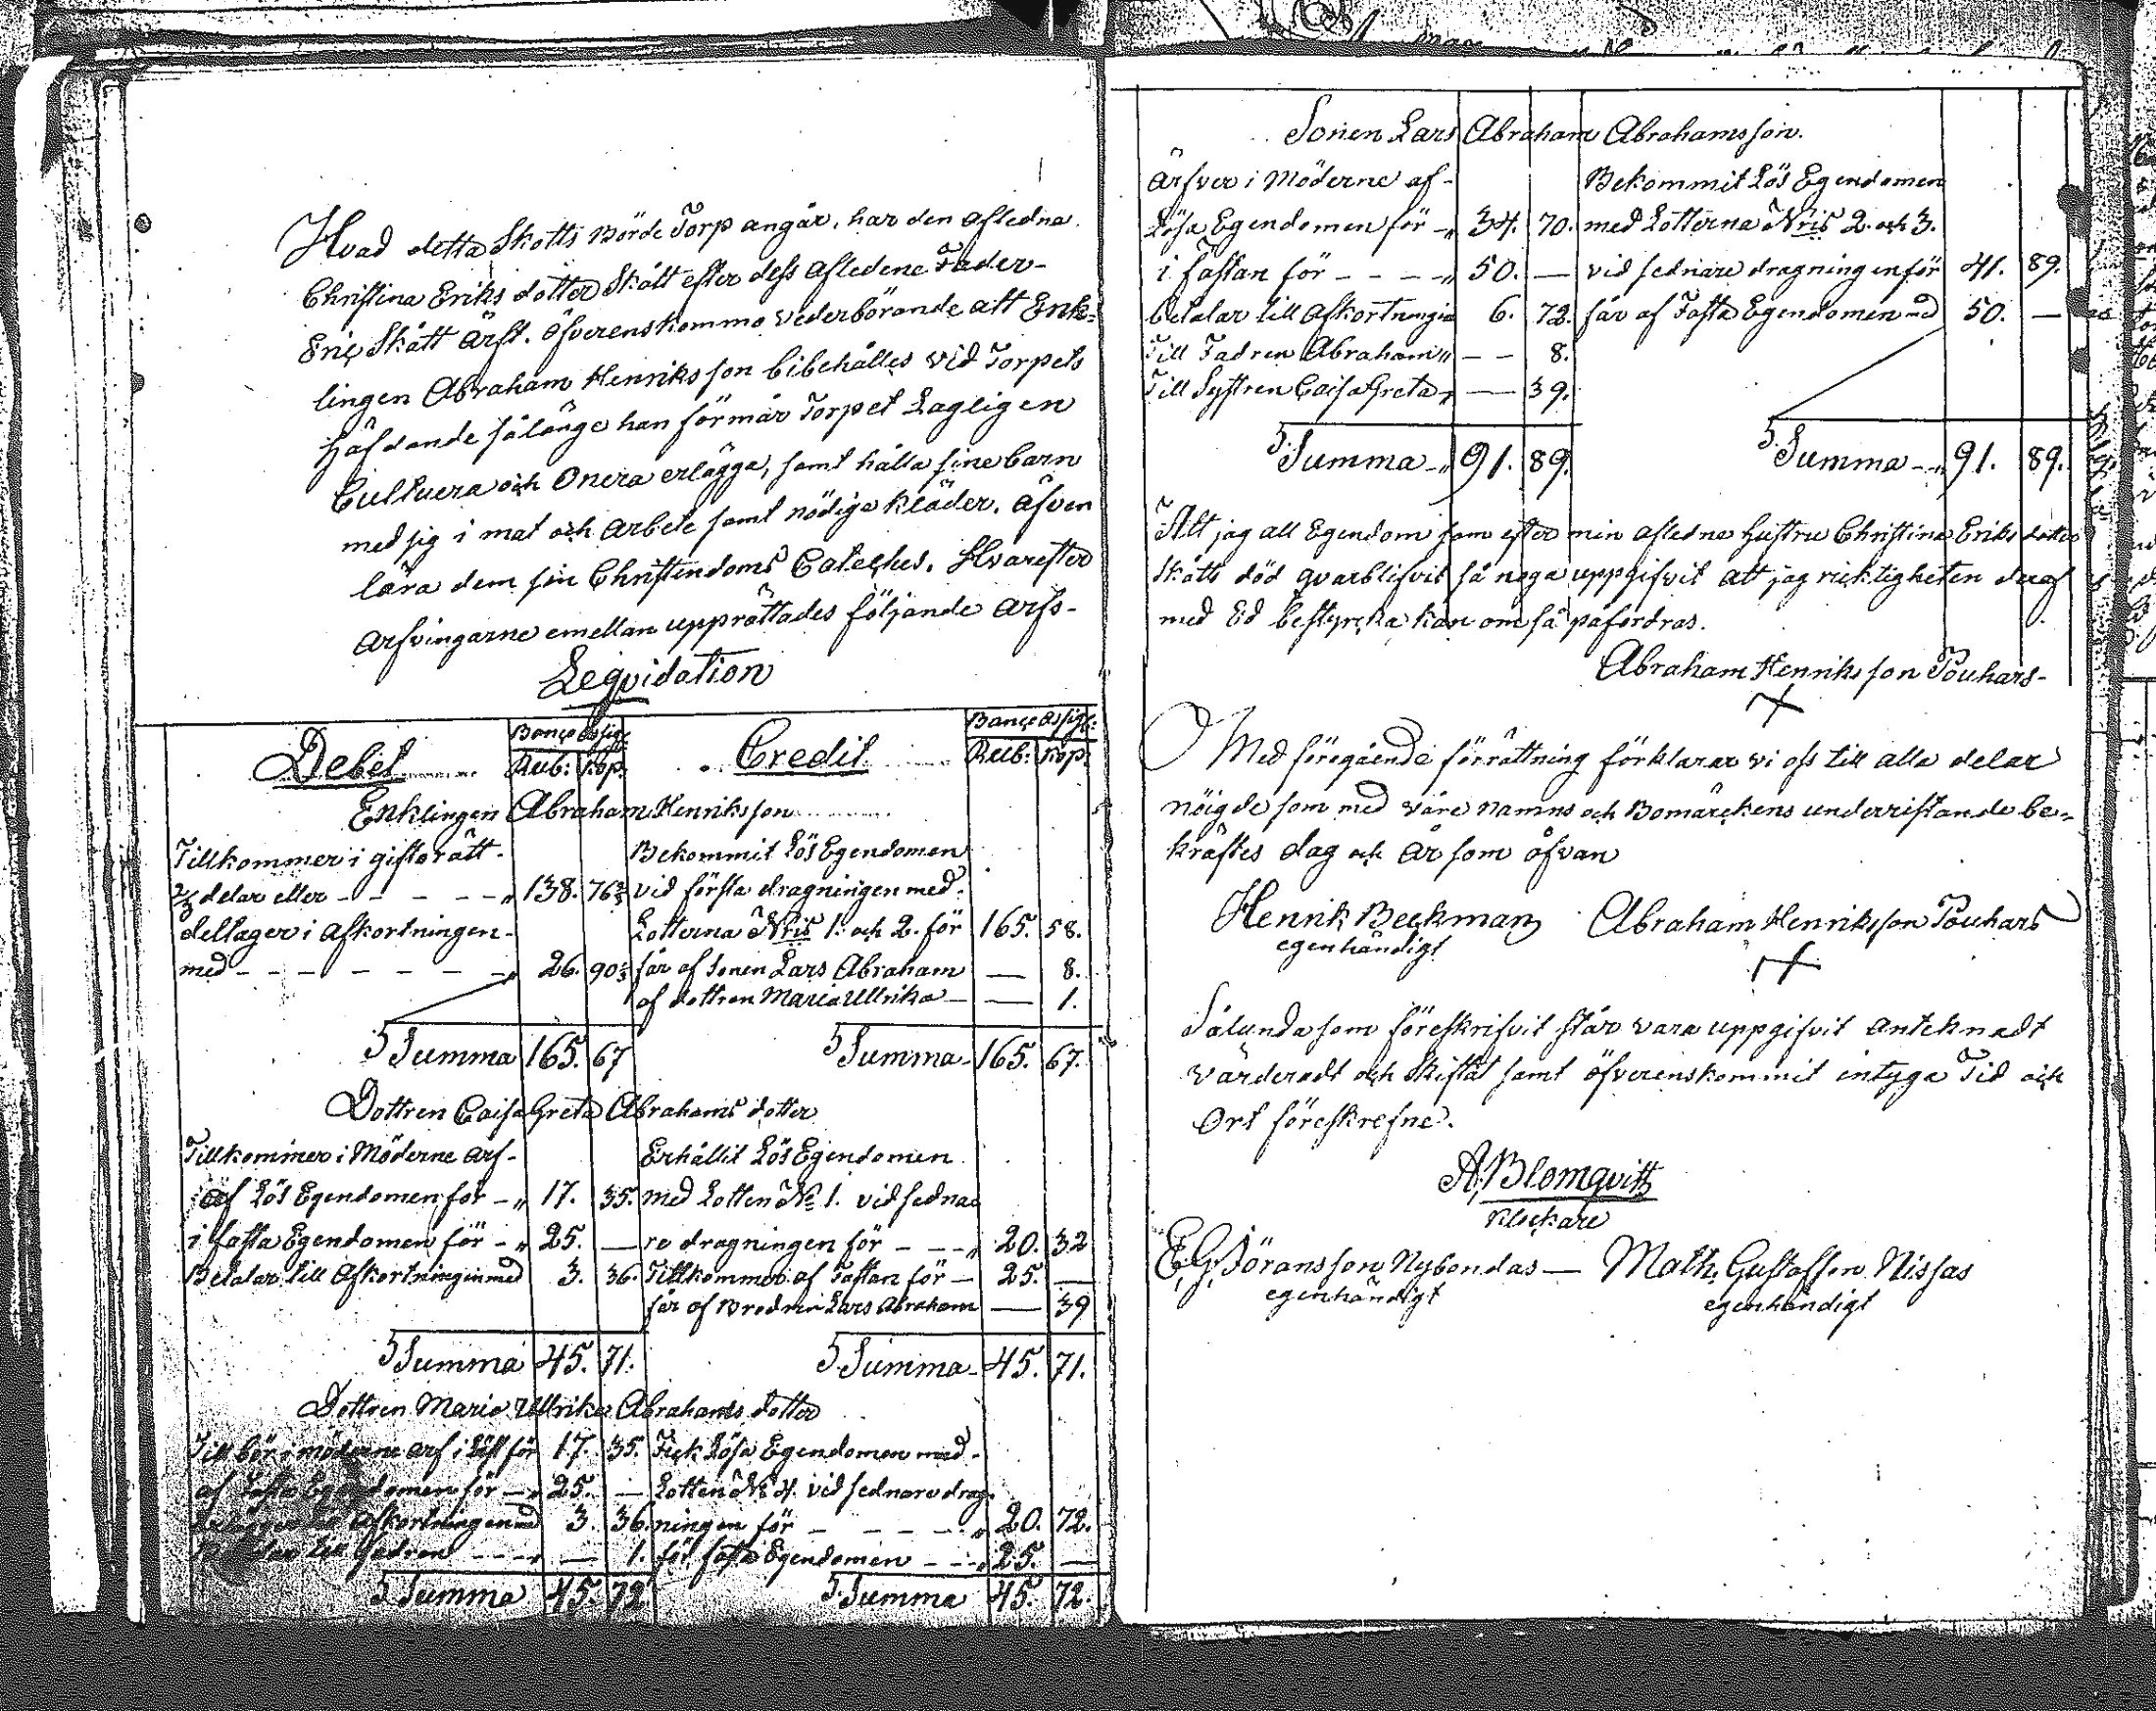 Hvad detta Skotts Börde Torp angår, har den afledna
Christina Eriks dotter Skått efter dess afledene Fader
Eric Skått ärft. öfverenskommo vederbörande att Enk-
lingen Abraham Henriksson bibehålles vid Torpets
häfdande sålänge han förmår Torpet Lagligen
Cultuera och Onera erlägga, samt hålla sine barn
med sig i mat och arbete samt nödiga kläder, äfven
lära dem sin Christendoms Cateches. Hvarefter
arfvingarne emellan upprättades följande arfs-
Leqvidation
Debet Banco Assign: Rub: Kop: Credit Banco Assign: Rub: Kop:
Enklingen Abraham Henriksson
Tillkommer i giftorätt Bekommit Lös Egendomen
2/3 delar eller - - - - „ 138. 76 2/3 vid första dragningen med
deltager i afkortningen Lotterna Nris 1. och 2. för 165. 58.
med - - - - - - „ 26. 90 1/3 får af sonen Lars Abraham — 8.
af dottren Maria Ullrika — — 1.
Summa 165. 67 Summa 165. 67.
Dottren Caisa Greta Abrahams dotter
Tillkommer i Möderne arf- Erhållit Lös Egendomen
af Lös Egendomen för - „ 17. 35. med Lotten No 1. vid sedna
i fasta Egendomen för - „ 25. — re dragningen för - - - „ 20. 32
Betalar till afkortningen med 3. 36. Tillkommer af Fastan för - 25. —
får af Brodren Lars Abraham — 39
Summa 45. 71. Summa 45. 71.
Dottren Maria Ullrika Abrahams dotter
Tillhör i möderne arf i Löst för 17. 35. Fick Lösa Egendomen med
af Fasta Egendomen för - „ 25. — Lotten No 4. vid sednare drag-
afkortningen med 3. 36. ningen för - - - - „ 20. 72.
till Fadren - - - „ — 1. för fasta Egendomen - - „ 25. —
Summa 45. 72. Summa 45. 72.
Sonen Lars Abraham Abrahamsson.
Ärfver i Möderne af- Bekommit Lös Egendomen
Lösa Egendomen för - „ 34. 70. med Lotterna Nris 2. och 3.
i Fastan för - - - - „ 50. — vid sednare dragningen för 41. 89.
betalar till afkortningen 6. 72. får af Fasta Egendomen med 50. —
Till Fadren Abraham „ — — 8.
Till Systren Caisa Greta „ — 39.
Summa - „ 91. 89. Summa - „ 91. 89.
Att jag all Egendom som efter min afledna Hustru Christina Eriks dotter
Skåtts död qvarblifvit så noga uppgifvit att jag riktigheten deraf
med Ed bestyrcka kan om så påfordras.
Abraham Henriksson Pouhars-
Med föregående förrättning förklarar vi oss till alla delar
nöigde som med våre namns och Bomärckens underristande be-
kräftes dag och år som ofvan
Henrik Beckman Abraham Henriksson Pouhars
egenhändigt
Sålunda som föreskrifvit står vara uppgifvit antecknadt
värderadt och Skiftat samt öfverenskommit intyga Tid och
Ort föreskrefne.
A. Blomqvist
Klockare
E. G. Göransson Nybondas — Math. Gustafsson Nissas
egenhändigt egenhändigt